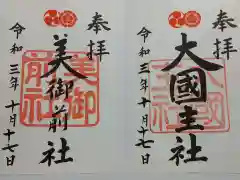 奉拝
美御前社
令和三年十月十七日
美御前社
奉拝
大國主社
令和三年十月十七日